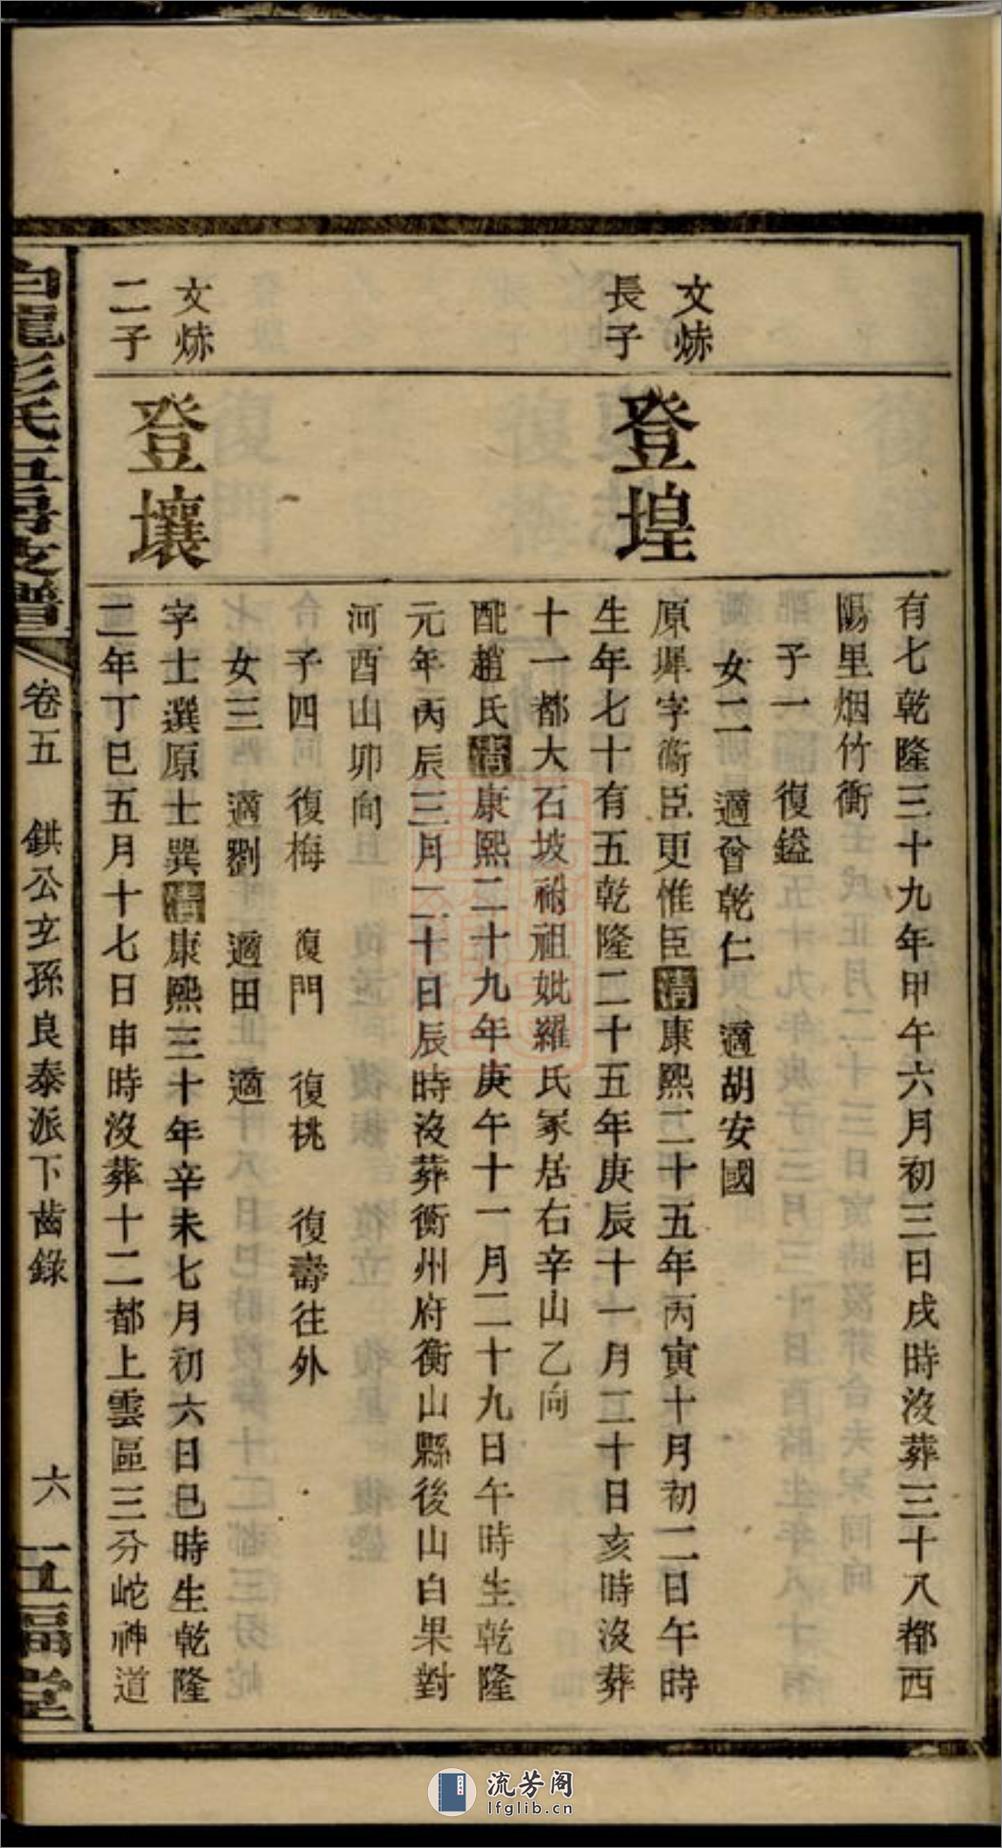 有七乾隆三十九年甲午六月初三日戌時沒葬三十八都西
陽里烟竹衝
子一　復鎰
女二　適曾乾仁　適胡安國
文烞
長子
登堭
原墀字衛臣更惟臣清康熙二十五年丙寅十月初二日午時
生年七十有五乾隆二十五年庚辰十一月二十日亥時沒葬
十一都大石坡祔祖妣羅氏冢居右辛山乙向
配趙氏清康熙二十九年庚午十一月二十九日午時生乾隆
元年丙辰三月二十日辰時沒葬衡州府衡山縣後山白果對
河酉山卯向
子四　復梅　復門　復桃　復壽往外
女三　適劉　適田　適
文烞
二子
登壤
字士選原士巽清康熙三十年辛未七月初六日巳時生乾隆
二年丁巳五月十七日申時沒葬十二都上雲區三分岮神道
白龍彭氏五房支譜　卷五　鉷公玄孫良泰派下齒錄　六　五福堂
流芳阁
lfglib.cn